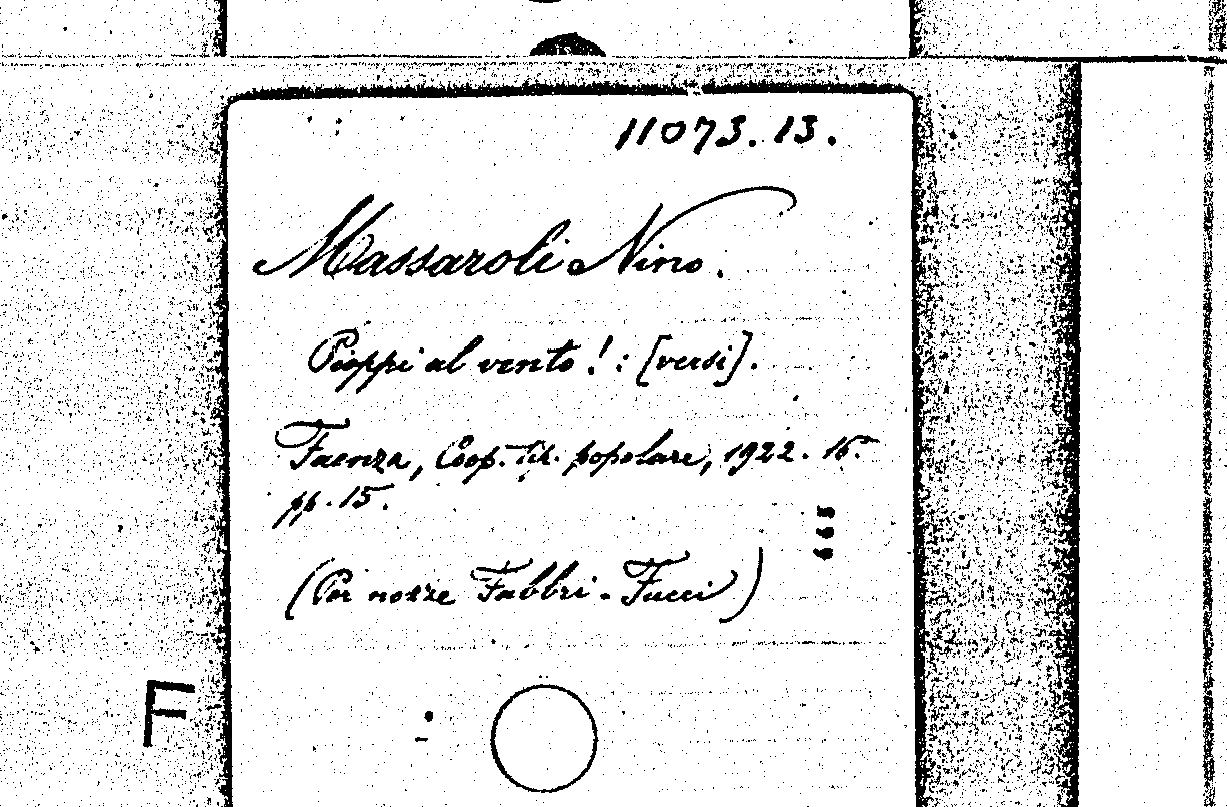 11073.13.
Massaroli Nino.
Pioppi al vento! : [versi].
Faenza, Coop. tip. popolare, 1922. 16.
pp. 15.
665
(Per nozze Fabbri-Fucci)
F